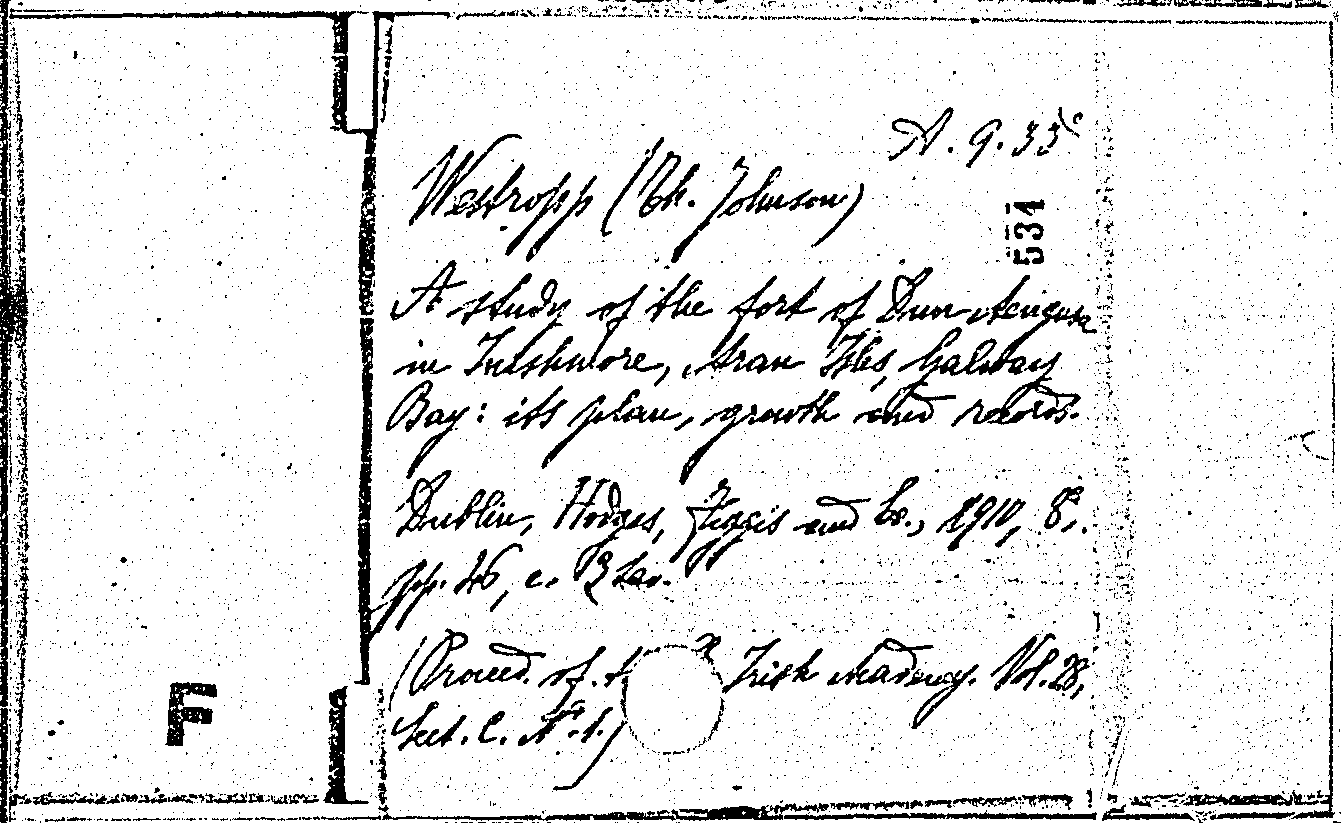 A. 9. 33
Westropp (Th. Johnson)
531
A study of the fort of Dun Aengusa
in Inishmore, Aran Isles, Galway
Bay: its plan, growth and records.
Dublin, Hodges, Figgis and Co., 1910, 8°,
pp. 46, c. tav.
(Proceed. of Irish Academy. Vol. 28,
Sect. C. N° 1.)
F